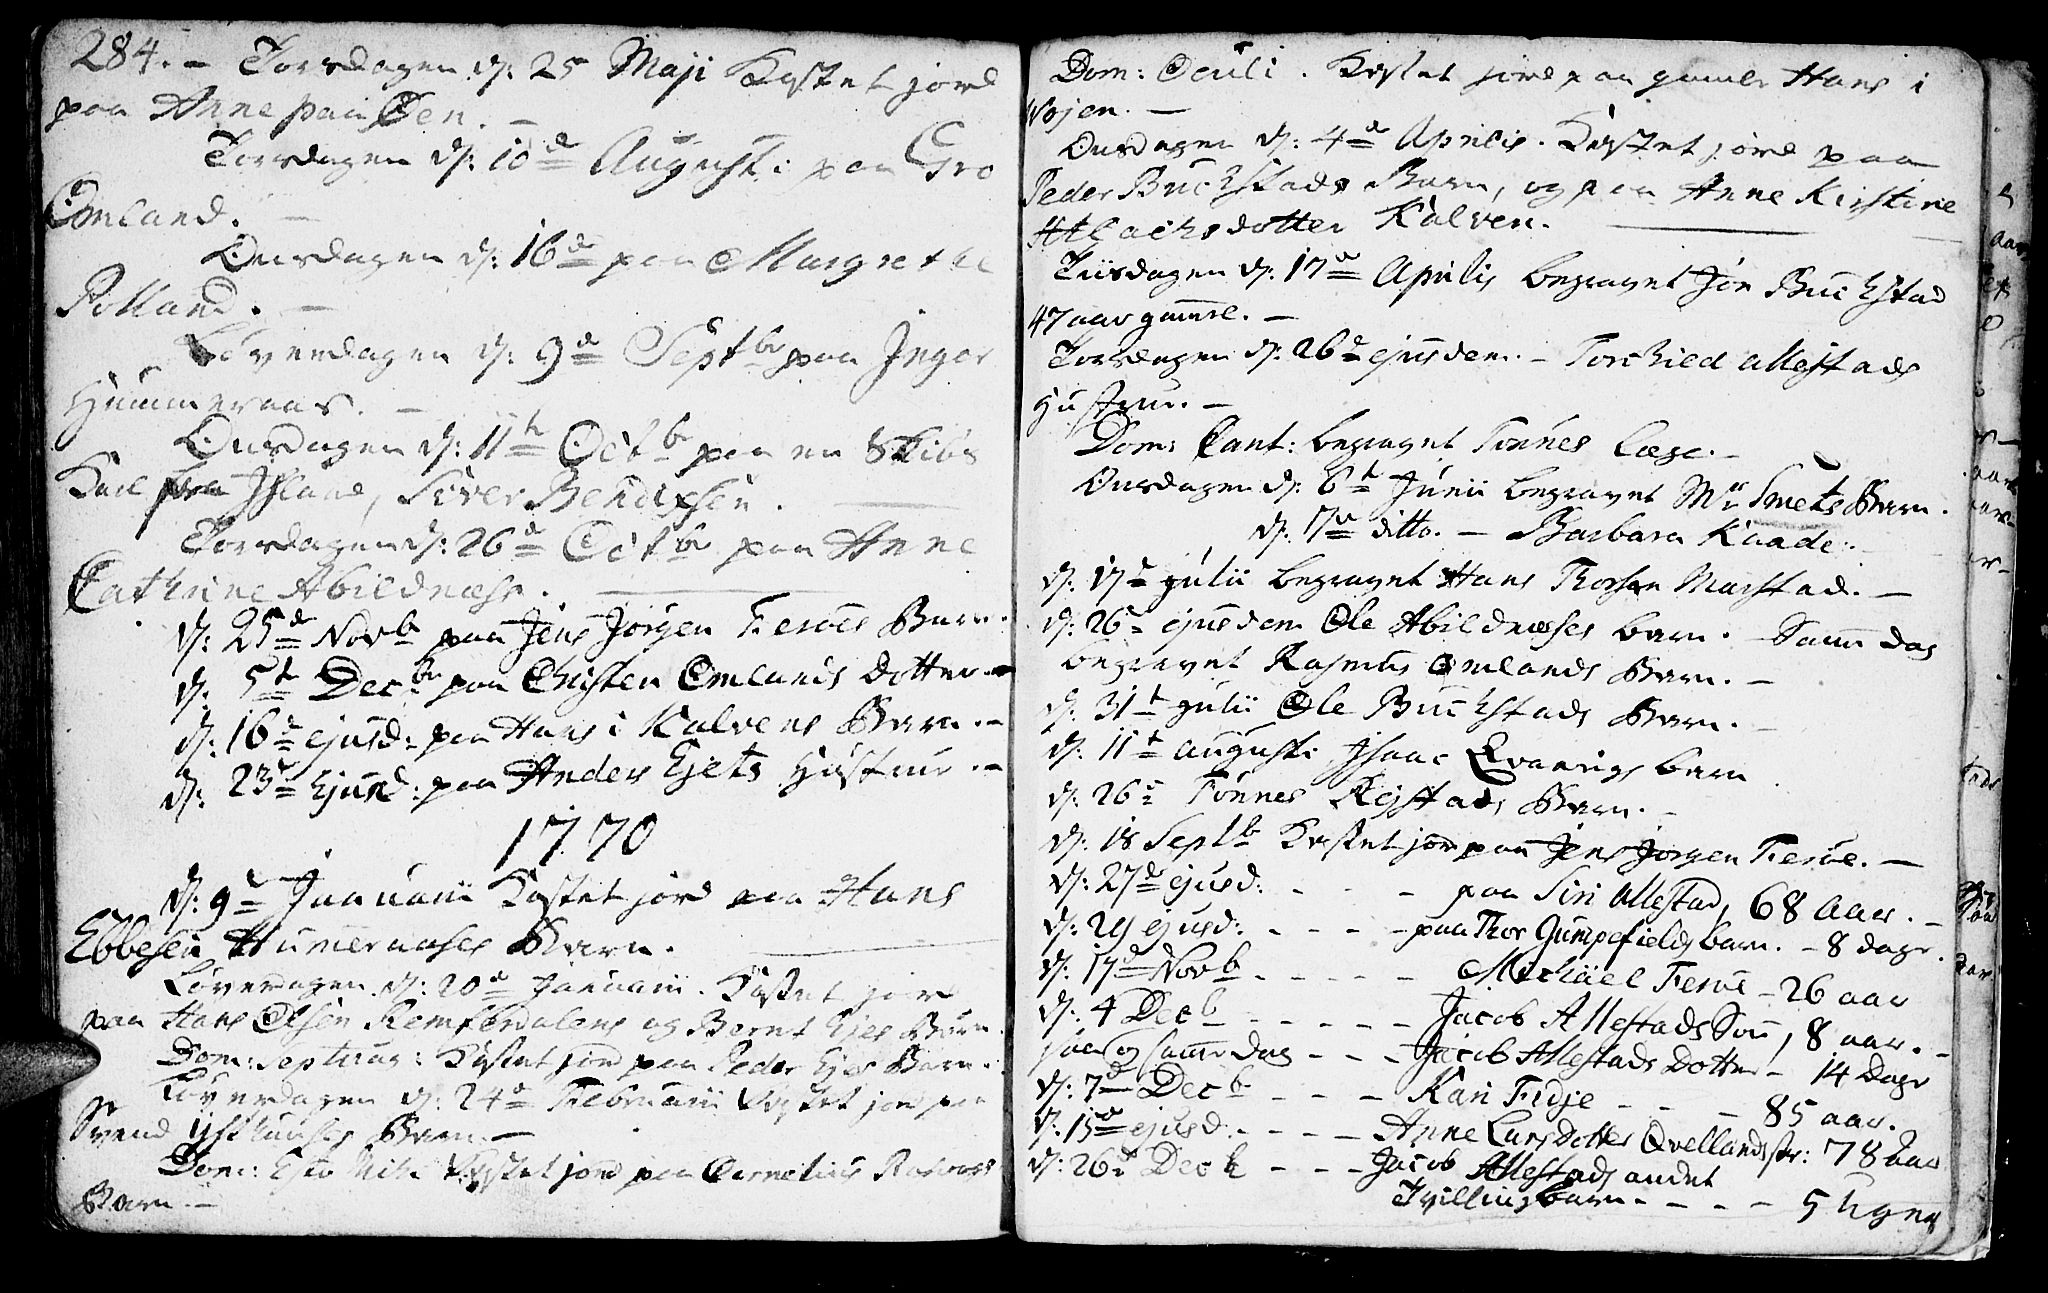 284. - Torsdagen d: 25 Maji Kastet jord
paa Anne paa Øen. -
Torsdagen d: 10de Augusti paa Gro
Omland. -
Onsdagen d: 16de paa Margrethe
Rolland. -
Løverdagen d: 9de Septbr paa Inger
Hummeraas. -
Onsdagen d: 11te Octb paa en Skibs
Karl fra Island, Siver Bendixsen.
Torsdagen d: 26de Octbr paa Anne
Cathrine Abildnæss.
d: 25de Novb paa Jens Jørgen Ferøes Barn.
d: 5te Decbr paa Christen Omlands Dotter. -
d: 16de ejusd: paa Hans i Kalvens Barn. -
d: 23de Ejusd: paa Anders Ejets Hustrue. -
1770
d: 9de Januarii Kastet jord paa Hans
Ebbesen Humeraases Barn.
Løverdagen d: 20de Januarii. Kastet jord
paa Hans Olsen Remferdalens og Bernt Ejes Børn.
Dom: Septuag: Kastet jord paa Peder Ejes Barn.
Løverdagen d: 24de Februarii Kastet jord paa
Svend Barn. -
Dom: Esto Mihi Kastet jord paa Cornelius
Barn. -
Dom: Oculi. Kastet jord paa gamle Hans i
Vojen. -
Onsdagen d: 4de Aprilis. Kastet jord paa
Peder Buchstads Barn, og paa Anne Kirstine
Atlachsdotter Kalven.
Tiisdagen d: 17de Aprilis begravet Jon Buchstad
47 aar gammel. -
Torsdagen d: 26de ejusdem. - Torchild Allestads
Hustrue. -
Dom: Cant: begravet Tønnes Læge. -
Onsdagen d: 6te Junii begravet Mr Smets Barn.
d: 17de ditto. - Barbara Kaade.
d: 17de Julii begravet Hans Thorsen Marstad. -
d: 26de ejusdem Ole Abildnæses barn. Samme dag
begravet Rasmus Omlands Barn. -
d: 31te Julii Ole Buchstads Barn. -
d: 11te Augusti Isaac Qvaavigs barn
d: 26de Tønnes Rejstads Barn. -
d: 18 Septb Kastet jord paa Jens Jørgen Ferøe. -
d: 27de ejusd: - - - paa Siri Allestad, 68 Aar. -
d: 29 ejusd: - - - - paa Thor Gumpefields barn. - 8 dage.
d: 17de Novb - - - - - Michäel Ferøe - 26 aar
d: 4 Decb - - - - - Jacob Allestads Søn, 8 aar. -
item og samme dag - - - Jacob Allestads Dotter - 14 Dage
d: 7de Decb - - - Kari Fidje - - - 85 aar.
d: 15de ejusd: - - - - Anne LarsDotter Qvellandstr: 78 Aar
d: 26de Decb - - - Jacob Allestads andet
Tvillingbarn - - - - 5 Uger